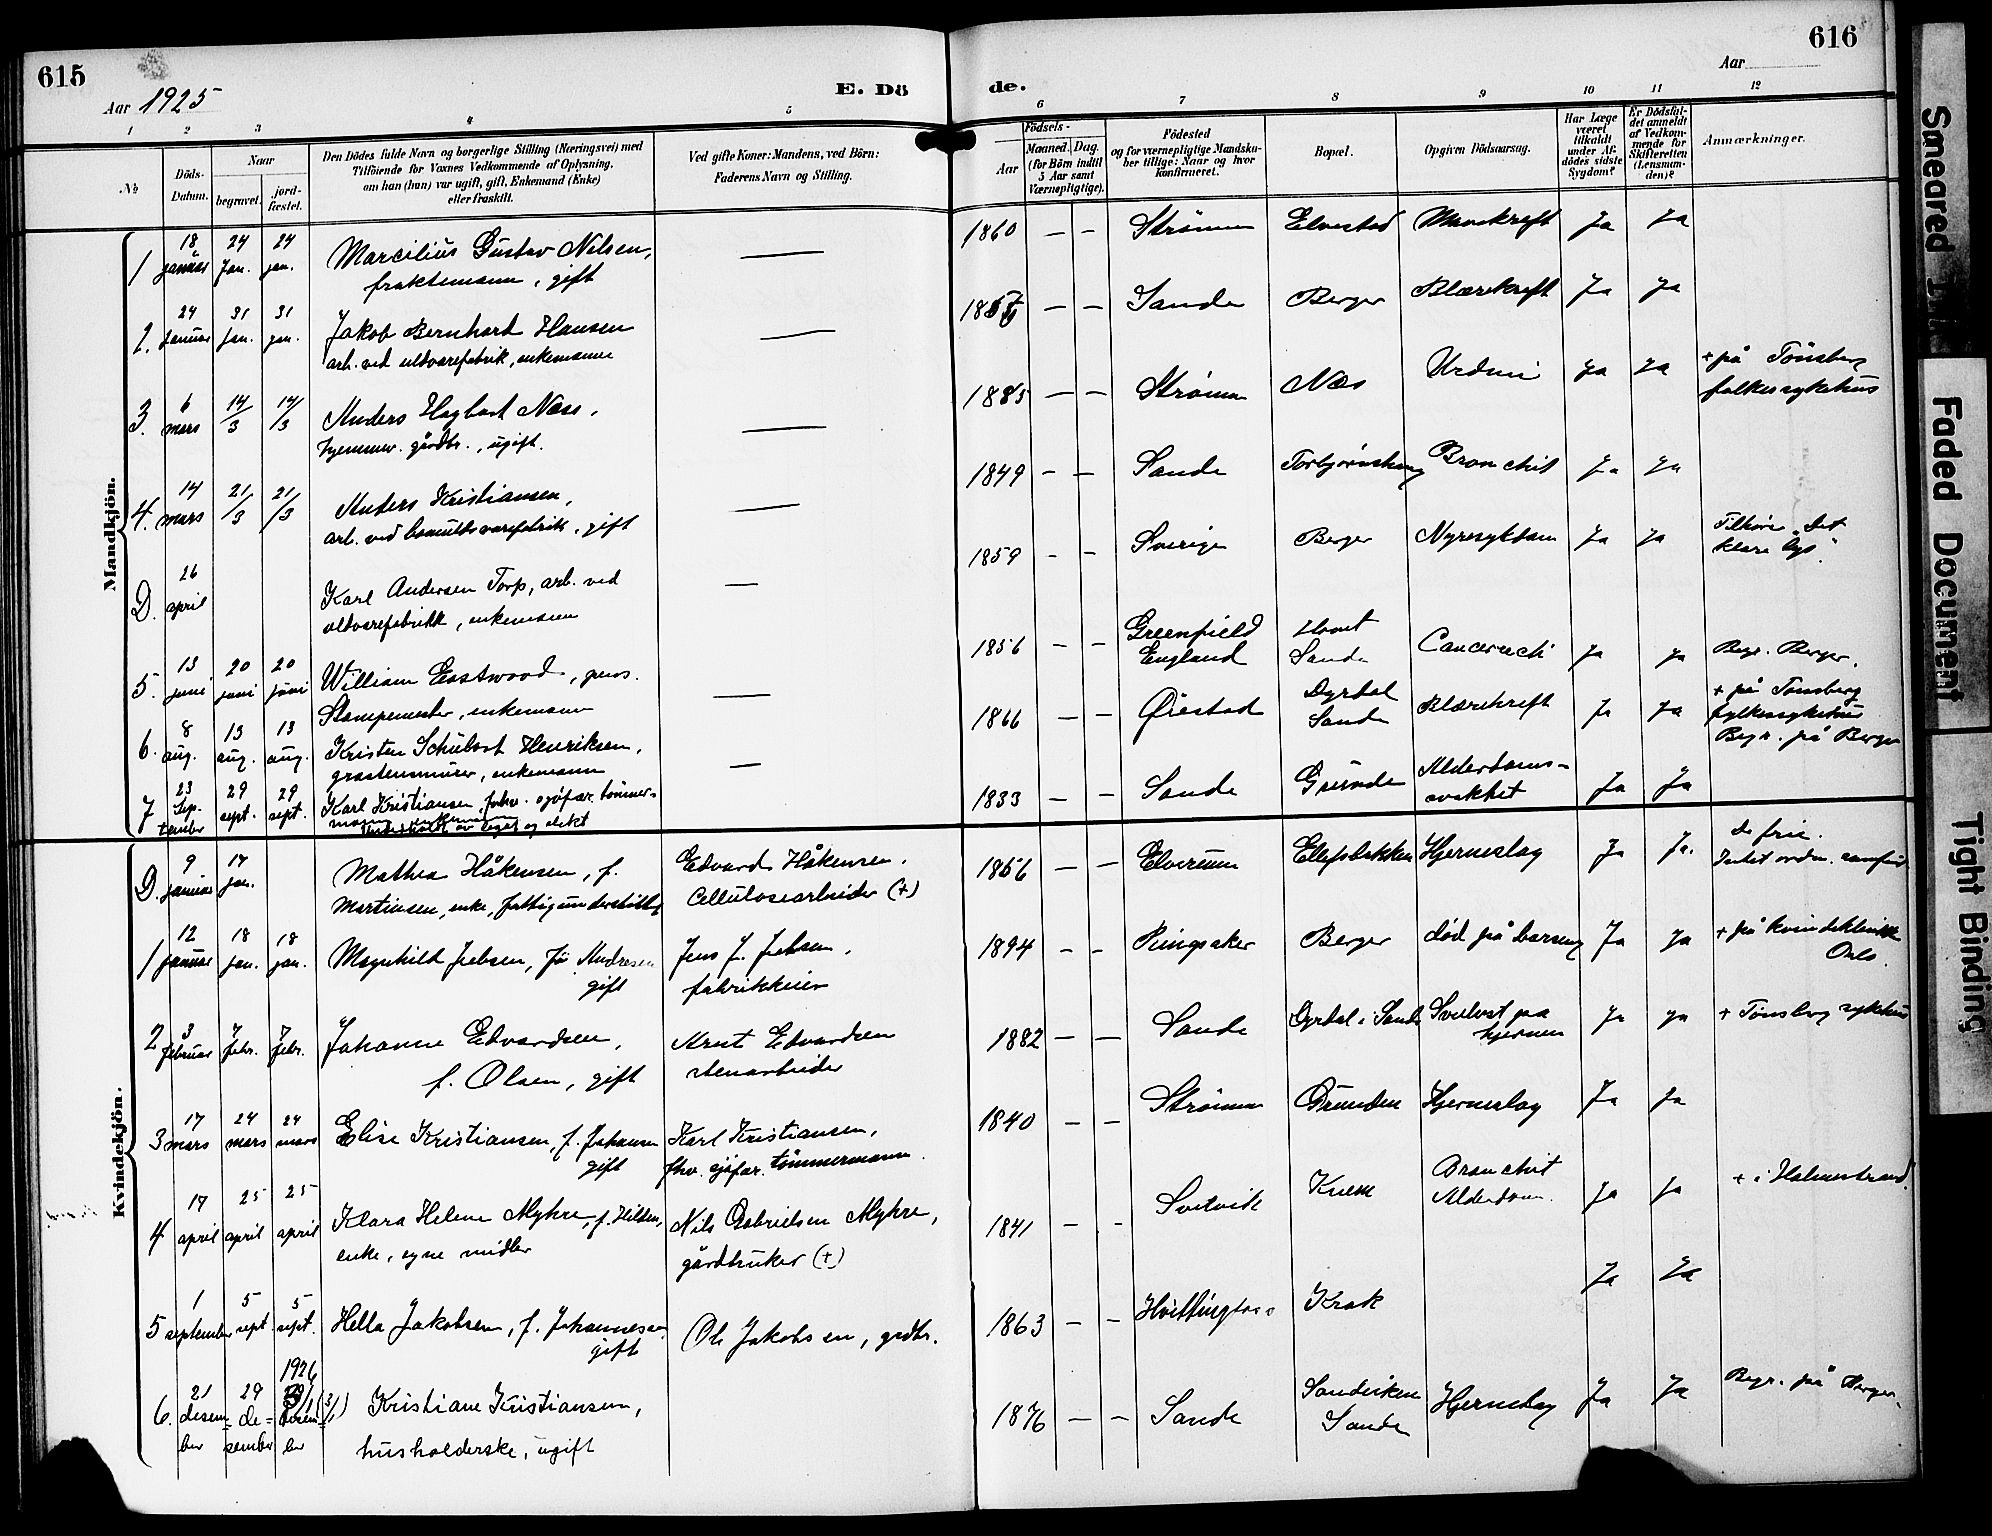 615
Aar 1925
E. Dö
de.
616
Aar
1 2 3 4 5 6 7 8 9 10 11 12
No
Döds-Datum.
Naar
begravet.
jord-fæstet.
Den Dödes fulde Navn og borgerlige Stilling (Næringsvei) med
Tilföiende for Voxnes Vedkommende af Oplysning,
om han (hun) var ugift, gift, Enkemand (Enke)
eller fraskilt.
Ved gifte Koner: Mandens, ved Börn:
Faderens Navn og Stilling.
Födsels-
Aar
Maaned. Dag.
(for Börn indtil
5 Aar samt
Værnepligtige).
Födested
og for værnepligtige Mandska-
ber tillige: Naar og hvor
konfirmeret.
Bopæl.
Opgiven Dödsaarsag.
Har Læge
været
tilkaldt
under Af-
dödes sidste
Sygdom?
Er Dödsfal-
det anmeldt
af Vedkom-
mende for
Skifteretten
(Lensman-
den)?
Anmærkninger.
Mandkjön.
1 18 januar 24 Jan. 24 jan. Marcilius Gustav Nilsen, fraktemann, gift — 1860 — — Strømm Elvestad Mavekreft Ja Ja
2. 24 januar 31 Jan. 31 jan. Jakob Bernhard Hansen arb. ved uldvarefabrik, enkemann — — — Sande Berger Blærekreft Ja Ja
3. 6 mars 14/3 14/3 Anders Hagbart Næss, hjemmev. gårdbr., ugift. — 1885 — — Strømm Næs Urämi Ja Ja + på Tönsberg folkesykehus
4. 14 mars 21/3 21/3 Anders Kristiansen, arb. ved bomuldsvarefabrik, gift — 1849 — — Sande Torbjørnskrog Bronchit Ja Ja
D. 26 april Karl Andersen Torp, arb. ved uldvarefabrikk, enkemann — 1859 - - Sverige Berger Nyresykdom Ja Ja Tilhöre „Det klare lys".
5. 13 juni 20 juni 20 juni William Eastwood, pens. Stampemester, enkemann — 1856 — — Greenfield England Sande Ja Ja Begr. Berger.
6. 8 aug. 13 aug. 13 aug. Kristen Schubart Henriksen, gråstensmurer, enkemann — 1866 — — Ørestad Dyrdal Sande Blærekreft Ja Ja + på Tönsberg fylkessykehus Begr. på Berger
7 23 September 29 sept. 29 sept. Karl Kristiansen, forhv. sjöfar. tömmermann, enkemann og slekt 1833 — — Sande Grunde Alderdoms-svakhet Ja Ja
Kvindekjön.
D. 9 januar 17 jan. Mathea Håkensen, f. Martinsen, enke, fattigunderstöttet Edvard Håkensen, Cellulosearbeider (+) 1856 — — Elverum Ellefsbakken Hjerneslag Ja Ja. De frie. Intet ordn. samfund
1 12 januar 18 jan. 18 jan. Magnhild Jebsen, Andresen gift Jens J. Jebsen, fabrikkeier 1894 — — Ringsaker Berger död på barseng Ja Ja + på kvindeklinikk Oslo.
2 3 februar 7 febr. 7 febr. Johanne Edvardsen, f. Olsen, gift Arnt Edvardsen stenarbeider 1882 — — Sande Dyrdal i Sande Svulst paa hjernen Ja Ja + Tönsberg sykehus
3 17 mars 24 mars 24 mars Elise Kristiansen, f. Johansen gift Karl Kristiansen, fhv. sjöfar. tömmermann. 1840 — — Strömm Grunden Hjerneslag Ja Ja
4 17 april 25 april 25 april Klara Helene Myhre, f. Hilden, enke, egne midler Nils Gabrielsen Myhre, gårdbruker (+) 1841 — - Svelvik Knem Bronchit Alderdom. Ja Ja + i Holmestrand
5 1 september 5 sept. 5 sept. Hella Jakobsen, f. Johannessen gift Ole Jakobsen, grdbr. 1863 — — Hvittingfoss Krok Ja Ja
6. 21 desember 29 desember 1926 (3/1) Kristiane Kristiansen, husholderske, ugift 1876 — - Sande Sandviken Sande Hjerneslag Ja Ja Begr. på Berger.
Smeared
Faded Document
Tight Binding